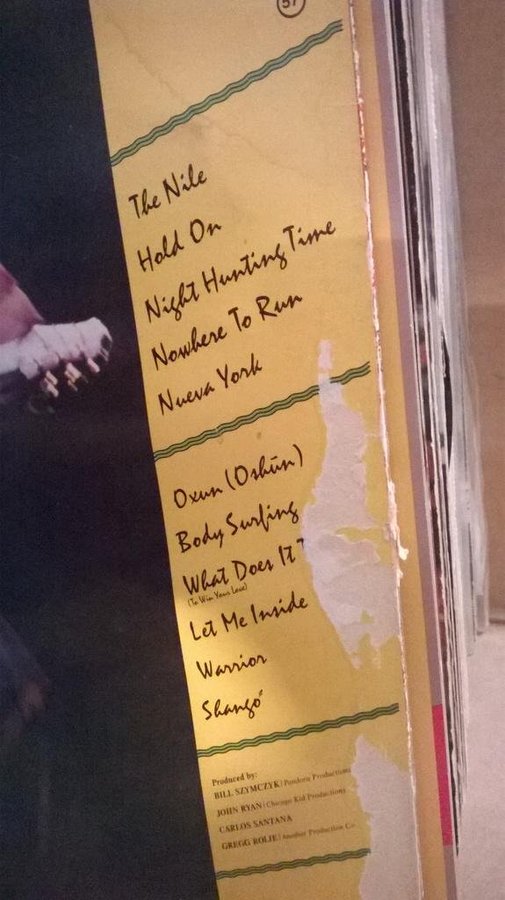 57
The Nile
Hold On
Night Hunting Time
Nowhere To Run
Nueva York
Oxun (Oshūn)
Body Surfing
What Does It T
(To Win Your Love)
Let Me Inside
Warrior
Shangó
Produced by:
BILL SZYMCZYK/Pandora Productions
JOHN RYAN/Chicago Kid Productions
CARLOS SANTANA
GREGG ROLIE/Another Production Co.